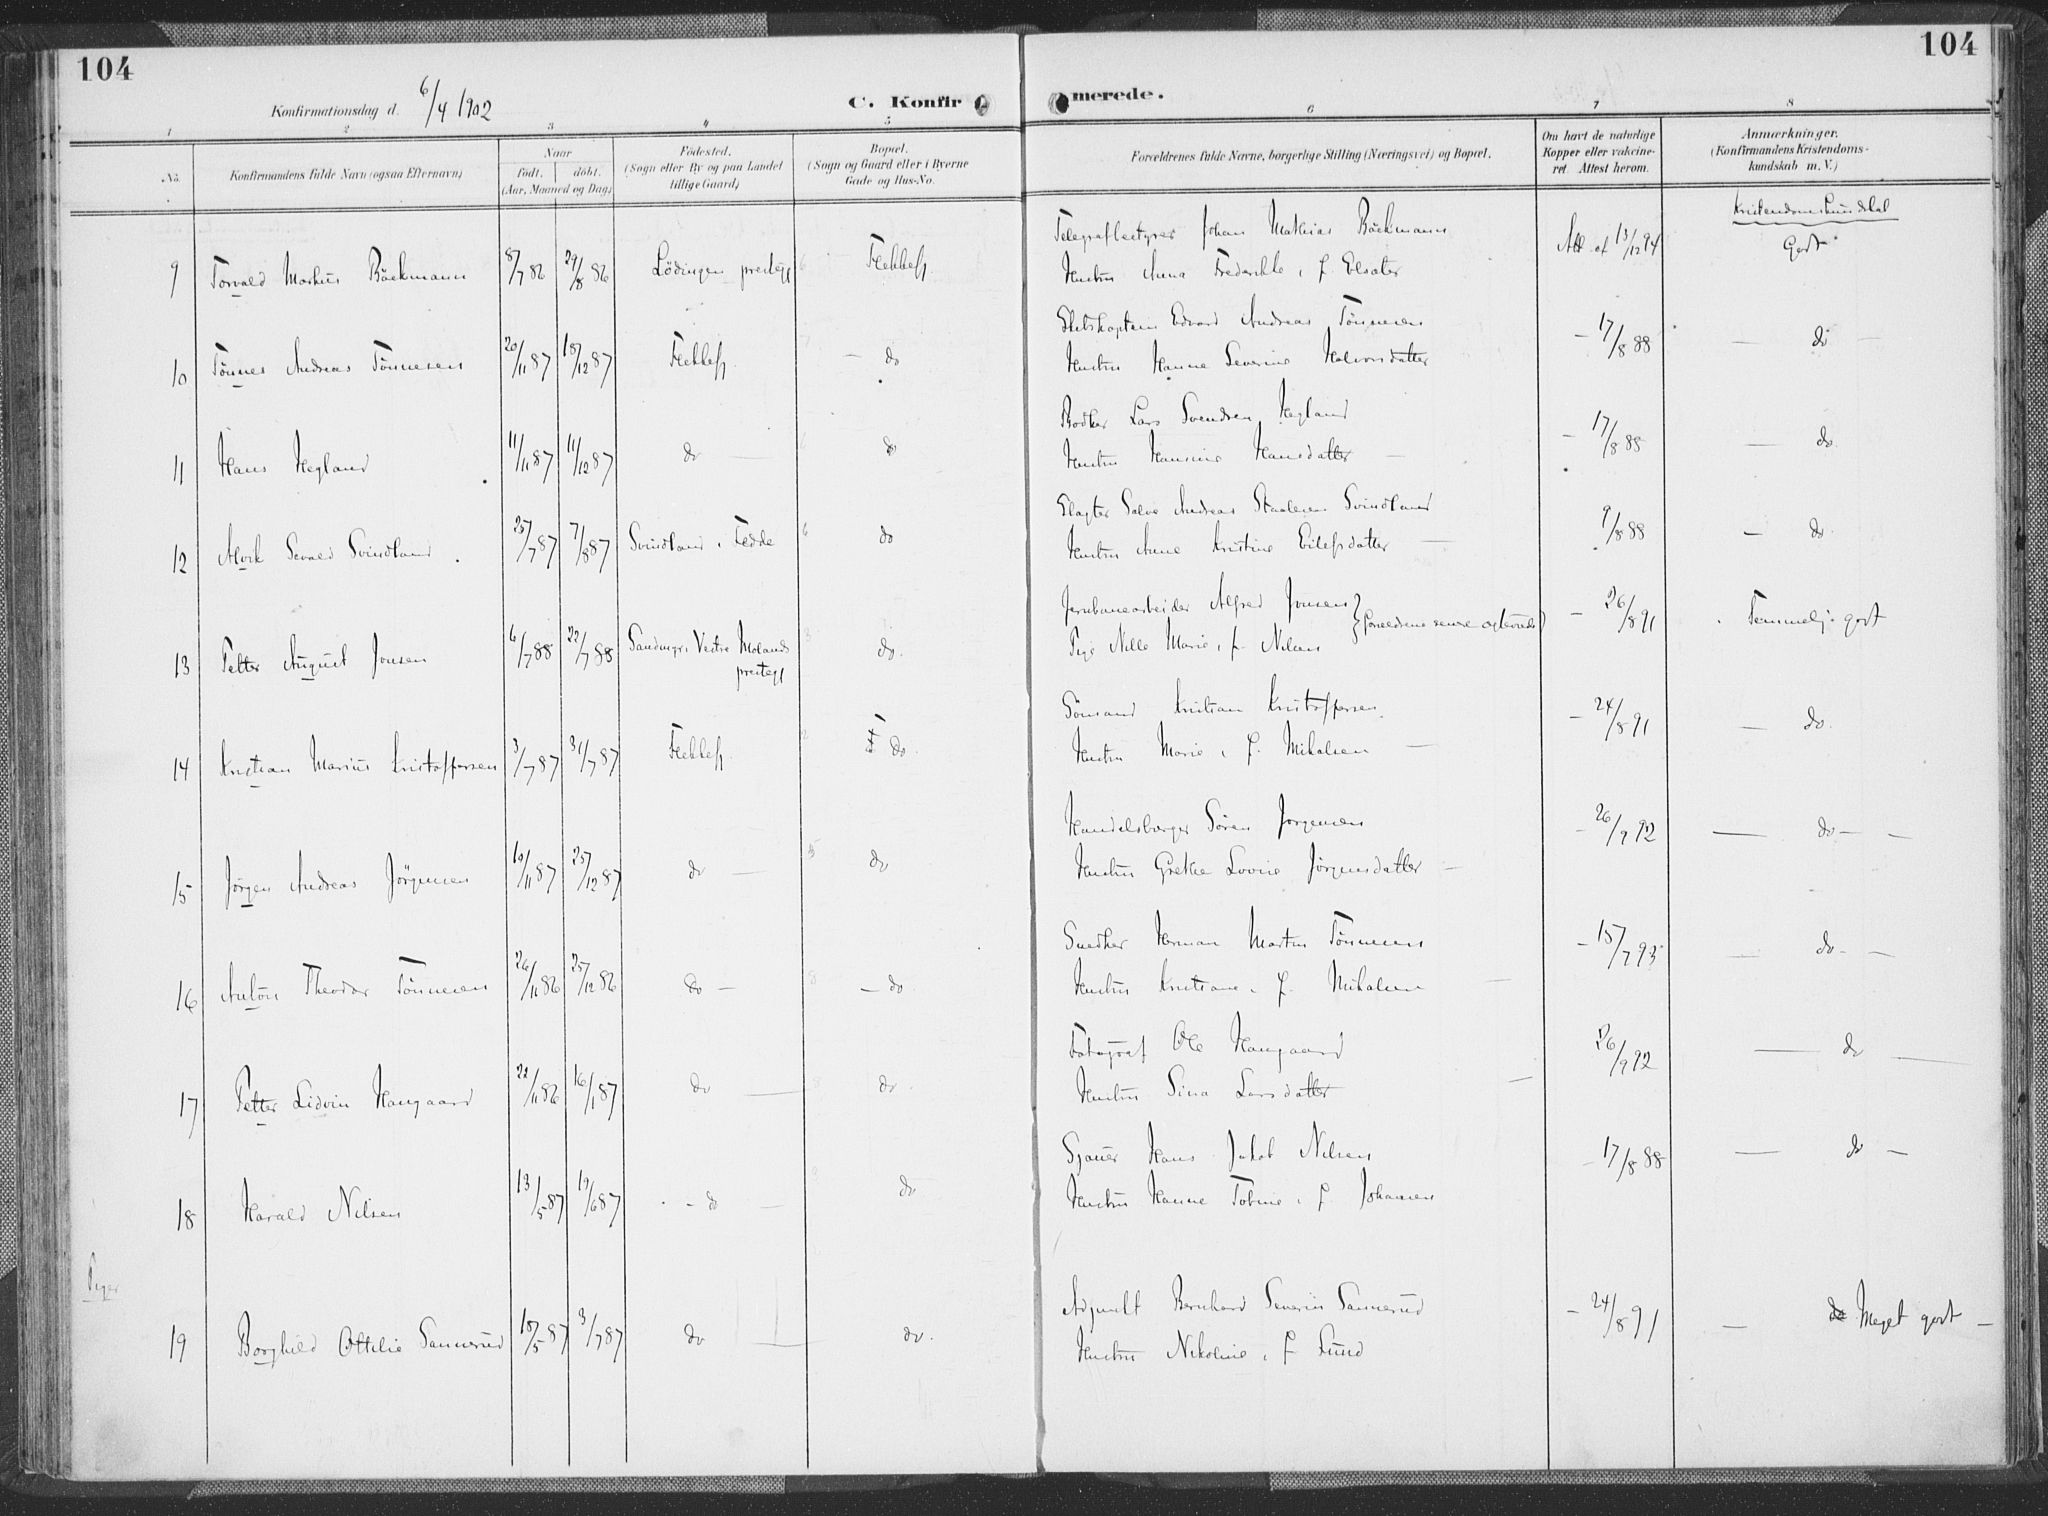 104
104
Konfirmationsdag d. 6/4 1902
C. Konfir
merede.
1 2 3 4 5 6 7 8
No.
Konfirmandens fulde Navn (ogsaa Efternavn)
Naar
født. døbt.
(Aar, Maaned og Dag)
Födested.
(Sogn eller By og paa Landet
tillige Gaard)
Bopæl.
(Sogn og Gaard eller i Byerne
Gade og Hus-No.
Forældrenes fulde Navne, borgerlige Stilling (Næringsvei) og Bopæl.
Om havt de naturlige
Kopper eller vakcine-
ret. Attest herom.
Anmærkninger.
(Konfirmandens Kristendoms-
kundskab m. V.)
Kristendomskundskab
Johan Mathias Böckmann
9 Torvald Markus Böckmann 8/7 86 29/8 86 Lödingen prestegj Flekkefj Att. af 13/12 94 Godt
Hustru Anna
Edvard Andreas Tönnesen
10 Tönnes Andreas Tönnesen 20/11 87 18/12 87 Flekkefj. — do — 17/8 88 — do —
Hustru Hanne Severine Halvorsdatter
Bödker Lars Svendsen Hegland
11 Hans Hegland 11/11 87 11/12 87 do — do — 17/8 88 — do.
Hustru Hansine Hansdatter —
Slagter Salve Andreas Svindland
12 Alvik Sevald Svindland 25/7 87 7/8 87 Svindland i Fedde do 9/8 88 — do
Hustru Anne Kristine Eilefsdatter —
Jernbanearbeider Alfred Jonsen
13 Petter August Jonsen 6/7 88 22/7 88 Vestre Molands prestegj do. — 26/8 91 Temmelig godt
Pige Nille Marie, f. Nilsen
Sömand Kristian Kristoffersen
14 Kristian Marius Kristoffersen 3/7 87 31/7 87 Flekkefj. do. — 24/8 91 — do.
Hustru Marie, f. Mikalsen —
Handelsborger Sören Jörgensen
15 Jörgen Andreas Jörgensen 19/11 87 25/12 87 do — do — 26/9 92 — do — —
Hustru Grethe Lovise Jörgensdatter —
Snedker Herman Martin Tönnesen
16 Anton Theodor Tönnesen 26/11 86 25/12 86 do — — do. — 15/7 93 — do — —
Hustru Kristiane, f. Mikalsen —
Fotograf Ole Haugaard
17 Petter Lidvin Haugaard 22/11 86 16/1 87 do — do 26/9 92 — do —
Hustru Sina Larsdatter —
Sjauer Hans Jakob Nilsen
18 Harald Nilsen 13/5 87 19/6 87 — do — do — 17/8 88 — do —
Hustru Hanne Tobine, f. Johansen
Piger
Adjunkt Bernhard Severin Sannerud
19 Borghild Ottilie Sannerud 18/5 87 3/7 87 do — do. — 24/8 91 — do Meget godt —
Hustru Nikoline, f. Lund